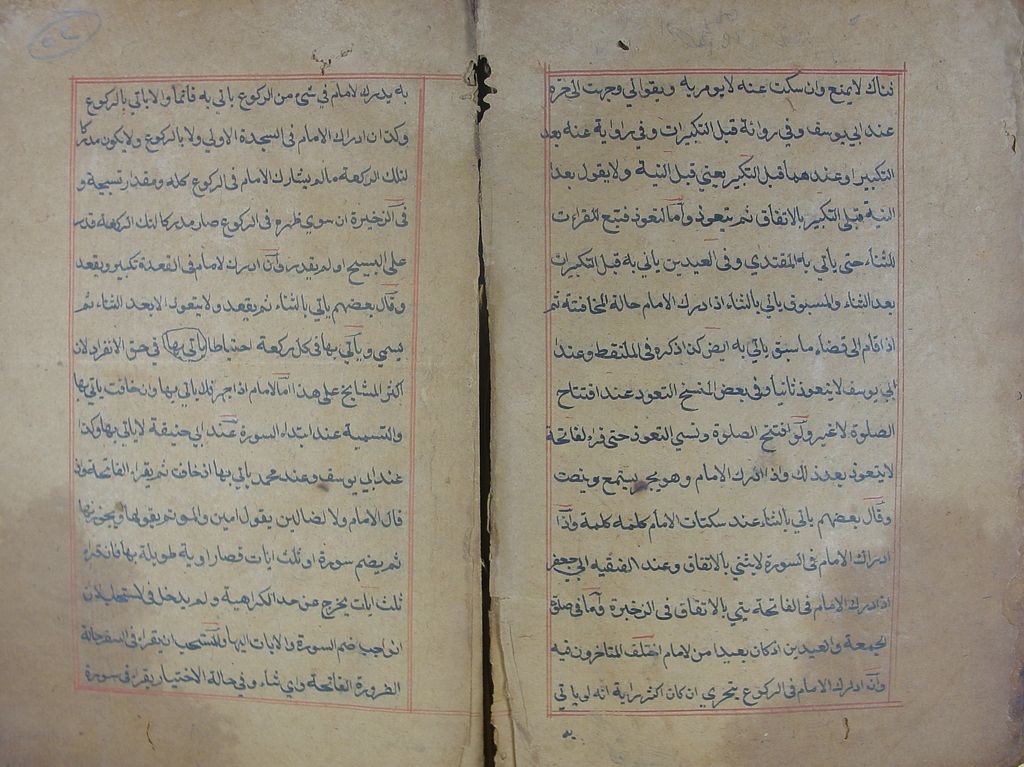 فناك لا يمنع وان سكت عنه لا يومر به ويقول اني وجهت الى اخره
عند ابي يوسف وفي رواية قبل التكبيرات وفي رواية عنه بعد
التكبيرا وعندهما قبل التكبير يعني قبل النية ولا يقول بعد
النية قبل التكبير بالاتفاق ثم يتعوذ واما التعوذ فتبع للقراءت
للثناء حتى ياتي به المقتدي وفي العيدين ياتي به قبل التكبيرات
بعد الثناء والمسبوق ياتي بالثناء اذا درك الامام حالة المخافتة ثم
اذا قام الى قضاء ما سبق ياتي به ايض كذا ذكره في الملتقط وعند
ابي يوسف لا يتعوذ ثانيا وفي بعض النسخ التعوذ عند افتتاح
الصلوة لا غير ولو افتتح الصلوة ونسي التعوذ حتى قرء الفاتحة
لا يتعوذ بعد ذلك واذا ادرك الامام وهو يجهر يستمع وينصت
وقال بعضهم ياتي بالثناء عند سكتات الامام كلمة كلمة واذا
ادراك الامام في السورة لا يثني بالاتفاق وعند الفقيه ابي جعفر
اذا درك الامام في الفاتحة يثني بالاتفاق في الزخيرة واما في صلوة
الجمعة والعيدين اذ كان بعيدا من الامام اختلف المتاخرون فيه
وان ادرك الامام في الركوع يتحري ان كان اكثر راية انه لو ياتي
به يدرك لامام في شئ من الركوع ياتي به قائما والا ياتي بالركوع
وكذا ان ادراك الامام في السجدة الاولي ولا بالركوع ولا يكون مدركا
لتلك الركعة ما لم يشارك الامام في الركوع كله ومقدار تسبيحة و
في الزخيرة ان سوي ظهره في الركوع صار مدركا لتك الركعة قدر
على التسبيح او لم يقدر وان ادرك لامام في القعدة تكبير ويقعد
وقال بعضهم ياتي بالثناء ثم يقعد ولا يتعوذ الا بعد الثناء ثم
يسمي وياتي بها في كل ركعة احتياطا ياتي بها في حق الانفراد لان
اكثر المشايخ على هذا اما الامام اذا جهر فلا ياتي بها وان خافت ياتي بها
والتسمية عند ابتداء السورة عند ابي حنيفة لا ياتي بها وكذا
عند ابي يوسف وعند محمد ياتي بها اذ خافت ثم يقراء الفاتحة واذ
قال الامام ولا لضالين يقول امين والموتم يقولها ويخفونها
ثم يضم سورة او ثلث ايات قصار او اية طويلة بها فان قراء
ثلث ايات يخرج عن حد الكراهية ولم يدخل في استحباب لان
الواجب ضم السورة والايات اليها والمستحب ان يقراء في السفر حالة
الضرورة الفاتحة واي شاء وفي حالة الاختيار يقراء في سورة